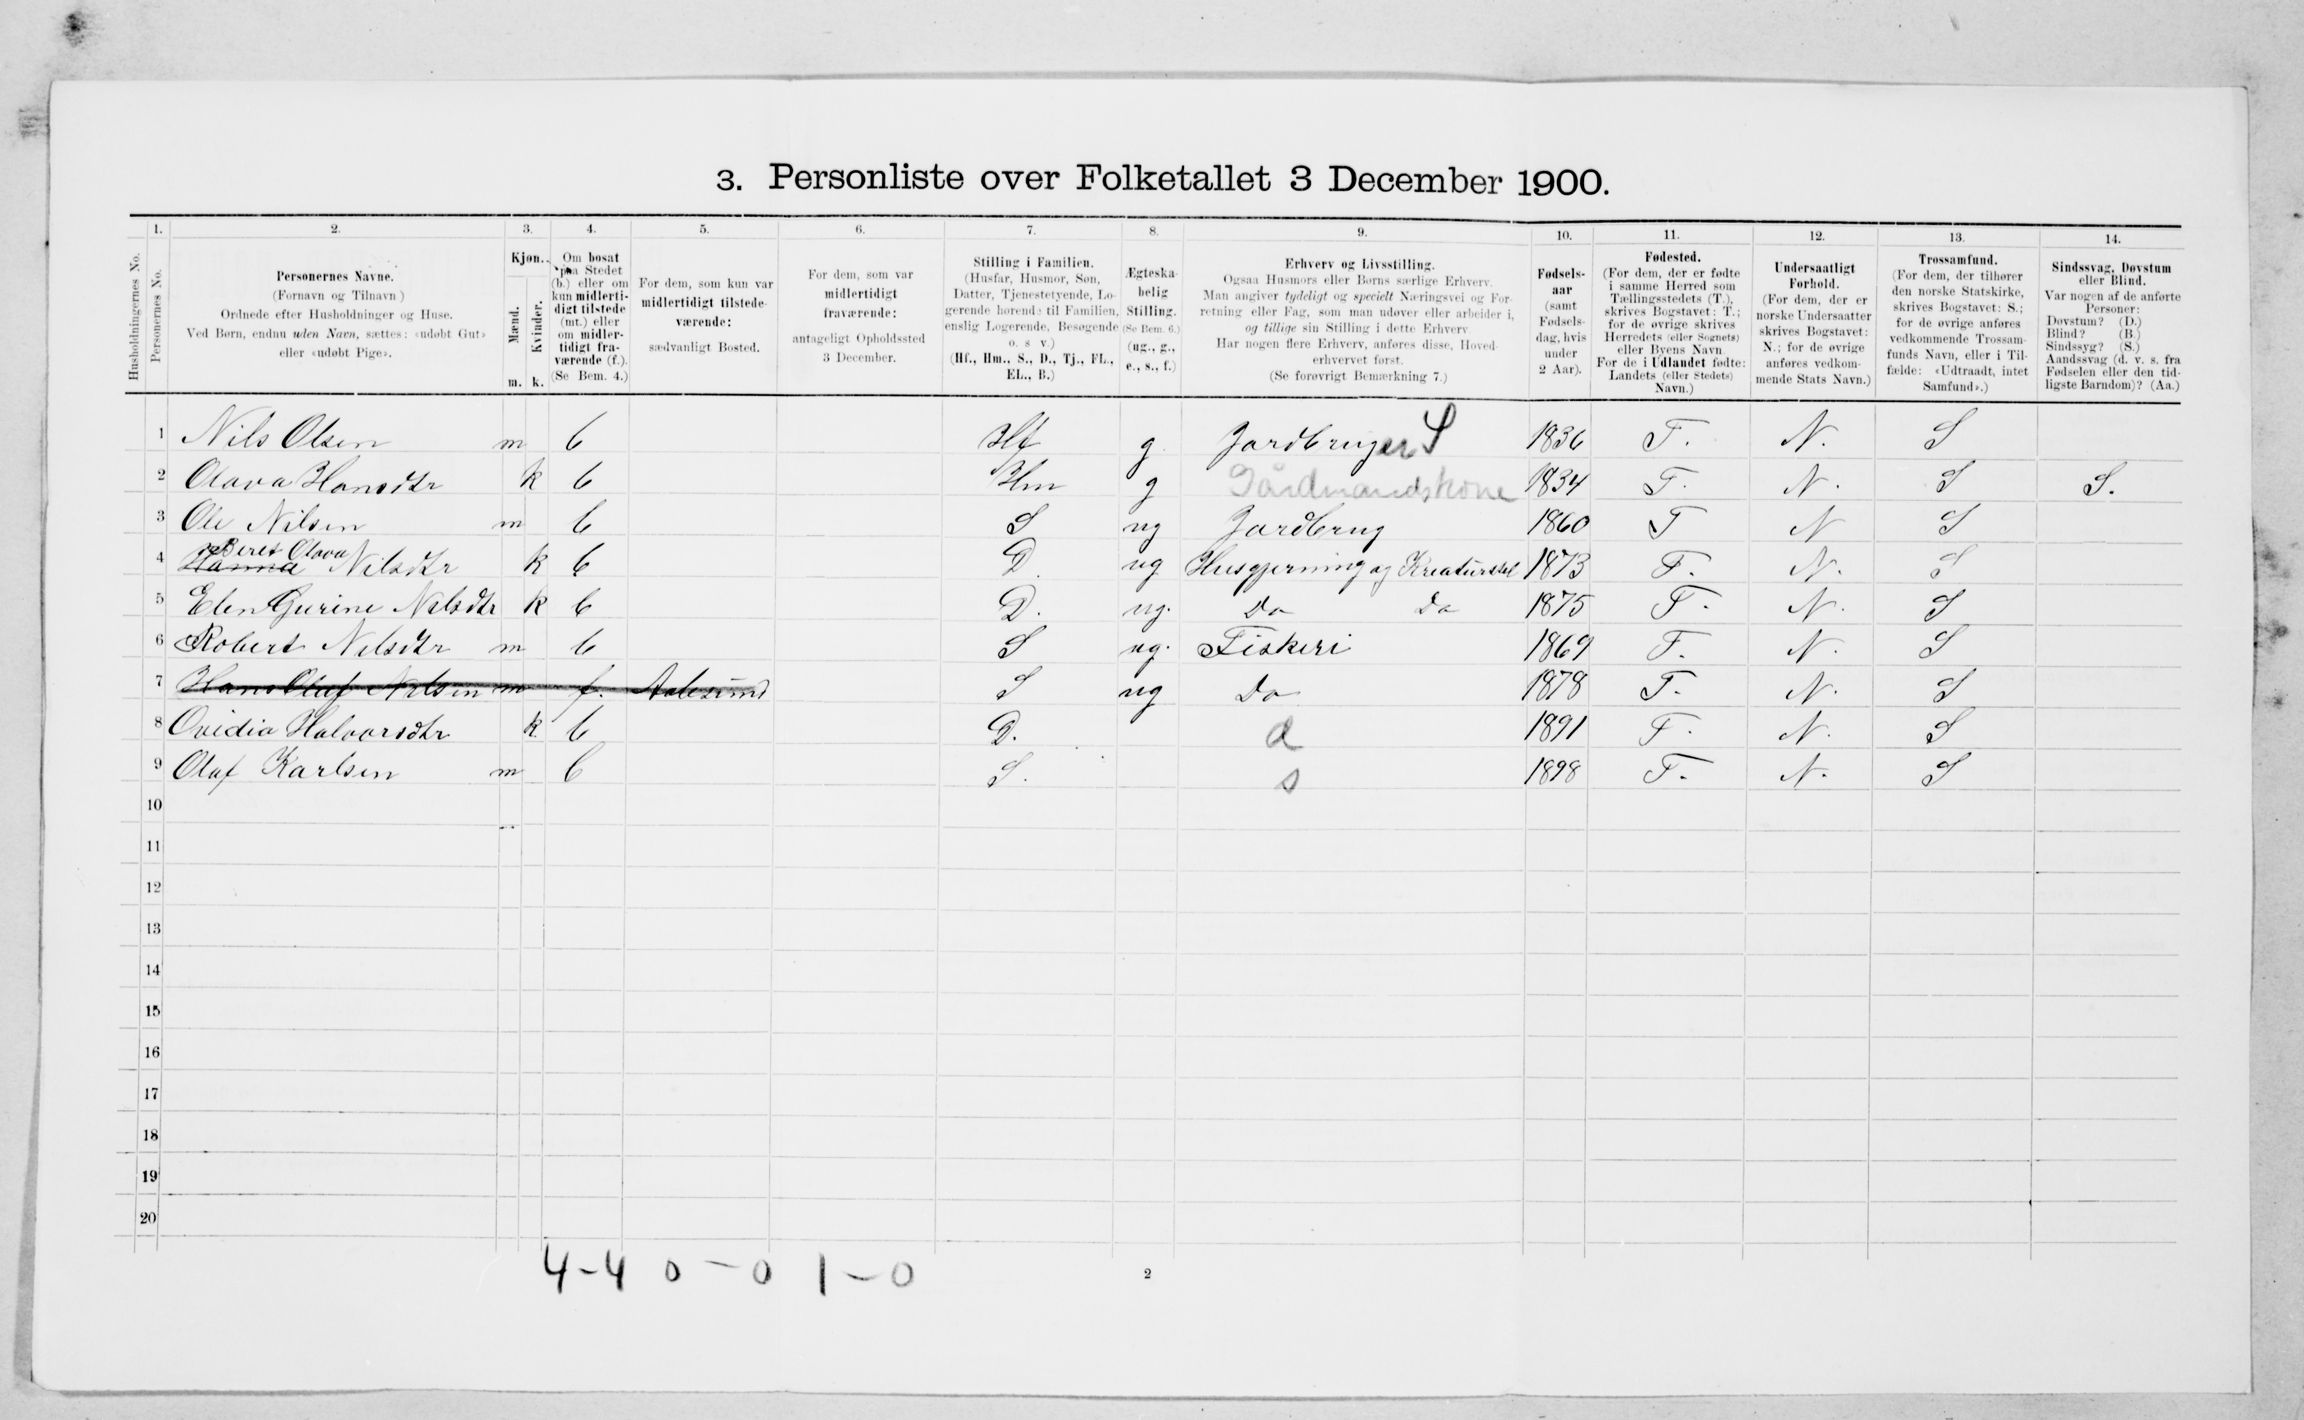 3. Personliste over Folketallet 3 December 1900.
1. 2. 3. 4. 5. 6. 7. 8. 9. 10. 11. 12. 13. 14.
Husholdningernes No.
Personernes No.
Personernes Navne.
(Fornavn og Tilnavn)
Ordnede efter Husholdninger og Huse.
Ved Børn, endnu uden Navn, sættes: «udøbt Gut»
eller «udøbt Pige».
Kjøn.
Mænd.
Kvinder.
m. k.
Om bosat
paa Stedet
(b.) eller om
kun midlerti-
digt tilstede
(mt.) eller
om midler-
tidigt fra-
værende (f.).
(Se Bem. 4.)
For dem, som kun var
midlertidigt tilstede-
værende:
sædvanligt Bosted.
For dem, som var
midlertidigt
fraværende:
antageligt Opholdssted
3 December.
Stilling i Familien.
(Husfar, Husmor, Søn,
Datter, Tjenestetyende, Lo-
gerende hørende til Familien,
enslig Logerende, Besøgende
o. s v.)
(Hf., Hm., S., D., Tj., FL.,
EL., B.)
Ægteska-
belig
Stilling.
(Se Bem. 6.)
(ug., g.,
e., s., f.)
Erhverv og Livsstilling.
Ogsaa Husmors eller Børns særlige Erhverv.
Man angiver tydeligt og specielt Næringsvei og For-
retning eller Fag, som man udøver eller arbeider i,
og tillige sin Stilling i dette Erhverv.
Har nogen flere Erhverv, anføres disse, Hoved-
erhvervet først.
(Se forøvrigt Bemærkning 7.)
Fødsels-
aar
(samt
Fødsels-
dag, hvis
under
2 Aar).
Fødested.
(For dem, der er fødte
i samme Herred som
Tællingsstedets (T.),
skrives Bogstavet: T.;
for de øvrige skrives
Herredets (eller Sognets)
eller Byens Navn.
For de i Udlandet fødte:
Landets (eller Stedets)
Navn.)
Undersaatligt
Forhold.
(For dem, der er
norske Undersaatter
skrives Bogstavet:
N.; for de øvrige
anføres vedkom-
mende Stats Navn.)
Trossamfund.
(For dem, der tilhører
den norske Statskirke,
skrives Bogstavet: S.;
for de øvrige anføres
vedkommende Trossam-
funds Navn, eller i Til-
fælde: «Udtraadt, intet
Samfund».)
Sindssvag, Døvstum
eller Blind.
Var nogen af de anførte
Personer:
Døvstum? (D.)
Blind? (B.)
Sindssyg? (S.)
Aandssvag (d. v. s. fra
Fødselen eller den tid-
ligste Barndom)? (Aa.)
1 Nils Olsen m b Hf g Jordbruger S 1836 T. N. S
2 Olava Hansdtr k b Hm g Gårdmandskone 1834 T. N. S S.
3 Ole Nilsen m b S ug Jordbrug 1860 T N S
Beret Olava
4 Hanna Nilsdtr k b D. ug Husgjerning og Kreaturstel 1873 T. N. S
5 Elen Gurine Nilsdtr k b D. ug. Do Do 1875 T. N. S
6 Robert Nilsdtr m b S ug. Fiskeri 1869 T. N. S
7 Hans Olaf Nilsen m f. Aalesund S ug Do 1878 T. N. S
8 Ovidia Halvorsdtr k b D. d 1891 T. N. S
9 Olaf Karlsen m b S. s 1898 T. N. S
10
11
12
13
14
15
16
17
18
19
20
4-4 0-0 1-0
2